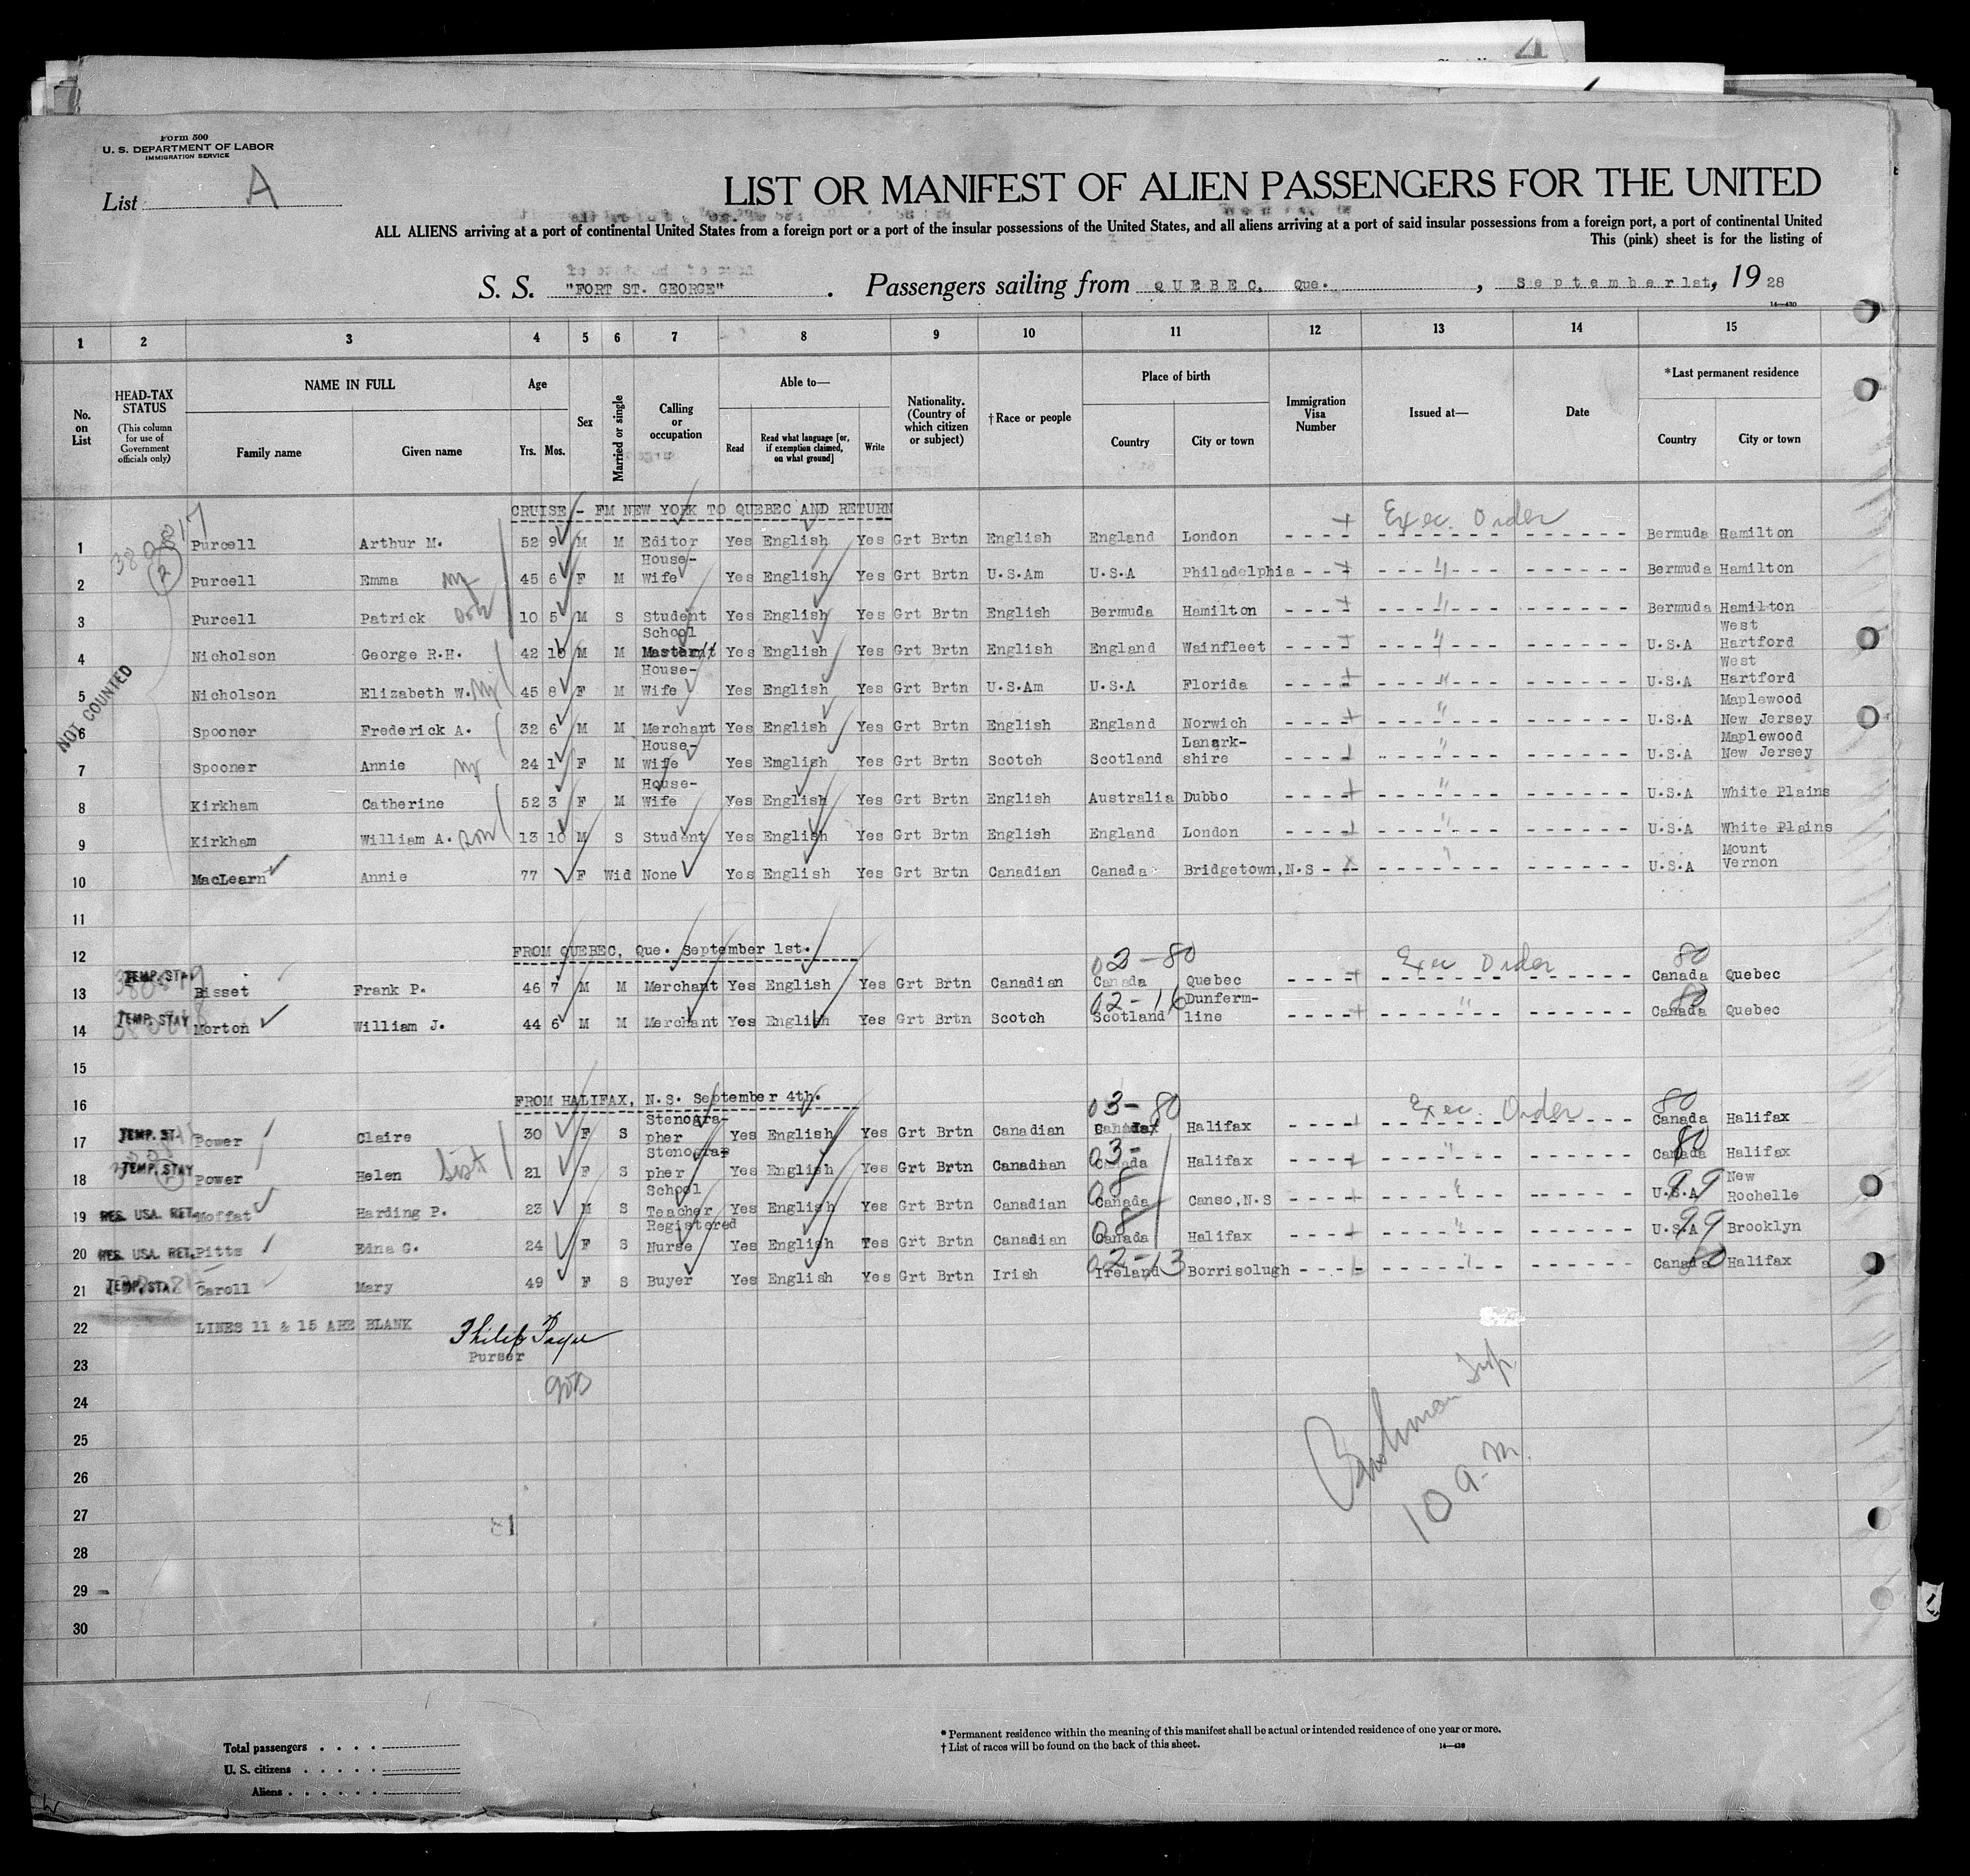 Form 500
U. S. DEPARTMENT OF LABOR
IMMIGRATION SERVICE
List A
LIST OR MANIFEST OF ALIEN PASSENGERS FOR THE UNITED
ALL ALIENS arriving at a port of continental United States from a foreign port or a port of the insular possessions of the United States, and all aliens arriving at a port of said insular possessions from a foreign port, a port of continental United
This (pink) sheet is for the listing of
S. S. "FORT ST. GEORGE". Passengers sailing from QUEBEC, Que., September 1st, 19 28
14—430
1 2 3 4 5 6 7 8 9 10 11 12 13 14 15
No. on List
HEAD-TAX STATUS
(This column for use of Government officials only)
NAME IN FULL
Family name
Given name
Age
Yrs. Mos.
Sex
Married or single
Calling or occupation
Able to—
Read
Read what language [or, if exemption claimed, on what ground]
Write
Nationality. (Country of which citizen or subject)
†Race or people
Place of birth
Country
City or town
Immigration Visa Number
Issued at—
Date
*Last permanent residence
Country
City or town
CRUISE - FM NEW YORK TO QUEBEC AND RETURN
Exec. Order
NOT COUNTED
1 Purcell Arthur M. 52 9 M M Editor Yes English Yes Grt Brtn English England London Bermuda Hamilton
2 Purcell Emma 45 6 F M House-Wife Yes English Yes Grt Brtn U.S.Am U.S.A Philadelphia " Bermuda Hamilton
3 Purcell Patrick 10 5 M S Student Yes English Yes Grt Brtn English Bermuda Hamilton " Bermuda Hamilton
4 Nicholson George R.H. 42 10 M M School Master Yes English Yes Grt Brtn English England Wainfleet " U.S.A West Hartford
5 Nicholson Elizabeth W. 45 8 F M House-Wife Yes English Yes Grt Brtn U.S.Am U.S.A Florida " U.S.A West Hartford
6 Spooner Frederick A. 32 6 M M Merchant Yes English Yes Grt Brtn English England Norwich " U.S.A Maplewood New Jersey
7 Spooner Annie 24 1 F M House-Wife Yes Emglish Yes Grt Brtn Scotch Scotland Lanark-shire " U.S.A Maplewood New Jersey
8 Kirkham Catherine 52 3 F M House-Wife Yes English Yes Grt Brtn English Australia Dubbo " U.S.A White Plains
9 Kirkham William A. 13 10 M S Student Yes English Yes Grt Brtn English England London " U.S.A White Plains
10 MacLearn Annie 77 F Wid None Yes English Yes Grt Brtn Canadian Canada Bridgetown, N.S " U.S.A Mount Vernon
11
12 FROM QUEBEC, Que. September 1st.
02-80 Exec Order 80
13 TEMP. STAY Bisset Frank P. 46 7 M M Merchant Yes English Yes Grt Brtn Canadian Canada Quebec Canada Quebec
02-16 80
14 TEMP. STAY Morton William J. 44 6 M M Merchant Yes English Yes Grt Brtn Scotch Scotland Dunferm-line " Canada Quebec
15
16 FROM HALIFAX, N.S. September 4th.
03-80 Exec. Order 80
17 TEMP. ST Power Claire 30 F S Stenogra-pher Yes English Yes Grt Brtn Canadian Canada Halifax Canada Halifax
03- 80
18 TEMP. STAY Power Helen Sist 21 F S Stenographer Yes English Yes Grt Brtn Canadian Canada Halifax " Canada Halifax
08 99
19 RES. USA. RET. Moffat Harding P. 23 M S School Teacher Yes English Yes Grt Brtn Canadian Canada Canso, N.S " U.S.A New Rochelle
08 99
20 RES. USA. RET. Pitts Edna G. 24 F S Registered Nurse Yes English Yes Grt Brtn Canadian Canada Halifax " U.S.A Brooklyn
02-13 80
21 TEMP. STA Caroll Mary 49 F S Buyer Yes English Yes Grt Brtn Irish Ireland Borrisolugh " Canada Halifax
22 LINES 11 & 15 ARE BLANK
Philip
Purser
23
24
25
26
27
28
29
30
Insp.
10 a.m.
Total passengers
U. S. citizens
Aliens
* Permanent residence within the meaning of this manifest shall be actual or intended residence of one year or more.
† List of races will be found on the back of this sheet.
14—430